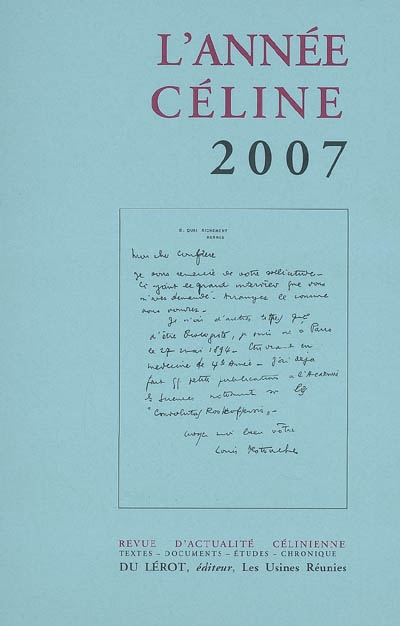 L'ANNÉE
CÉLINE
2007
6, QUAI RICHEMONT
RENNES
Mon cher Confrère
Je vous remercie de votre
Ci joint le grand interview que vous
m'avez demandé. Arrangez le comme
vous voudrez.
Je n'ai d'autres titres
d'être Biologiste, je suis né à Paris
le 27 mai 1894. Etudiant en
médecine de 4e Année. J'ai déjà
fait petites publications à l'Académie
des Sciences notamment sur les
"Convoluta Roskoffensis".
croyez moi bien vôtre
Louis Destouches
REVUE D'ACTUALITÉ CÉLINIENNE
TEXTES – DOCUMENTS – ÉTUDES – CHRONIQUE
DU LÉROT, éditeur, Les Usines Réunies